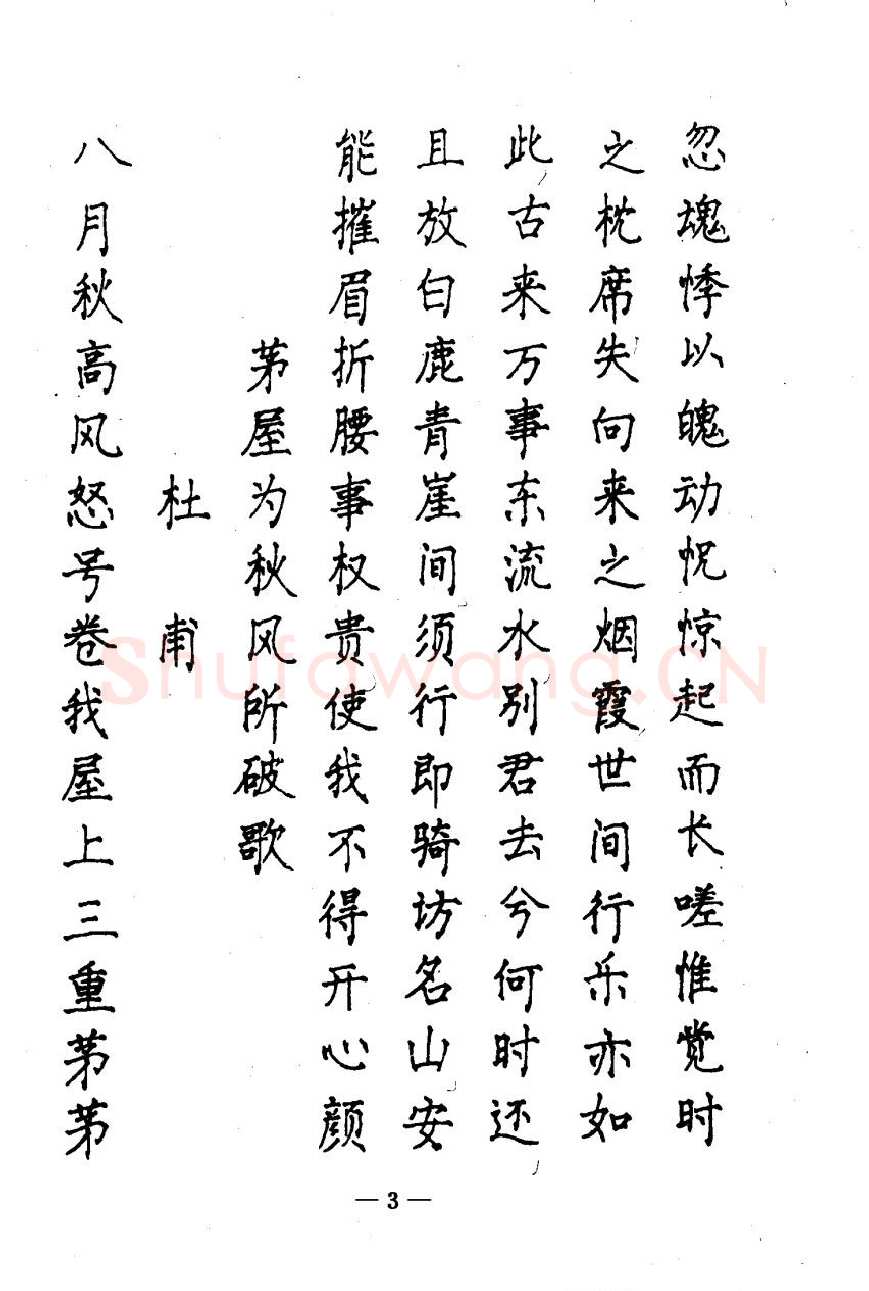 忽魂悸以魄动怳惊起而长嗟惟觉时
之枕席失向来之烟霞世间行乐亦如
此古来万事东流水别君去兮何时还
且放白鹿青崖间须行即骑坊名山安
能摧眉折腰事权贵使我不得开心颜
茅屋为秋风所破歌
杜甫
八月秋高风怒号卷我屋上三重茅茅
— 3 —
Shufawang.CN